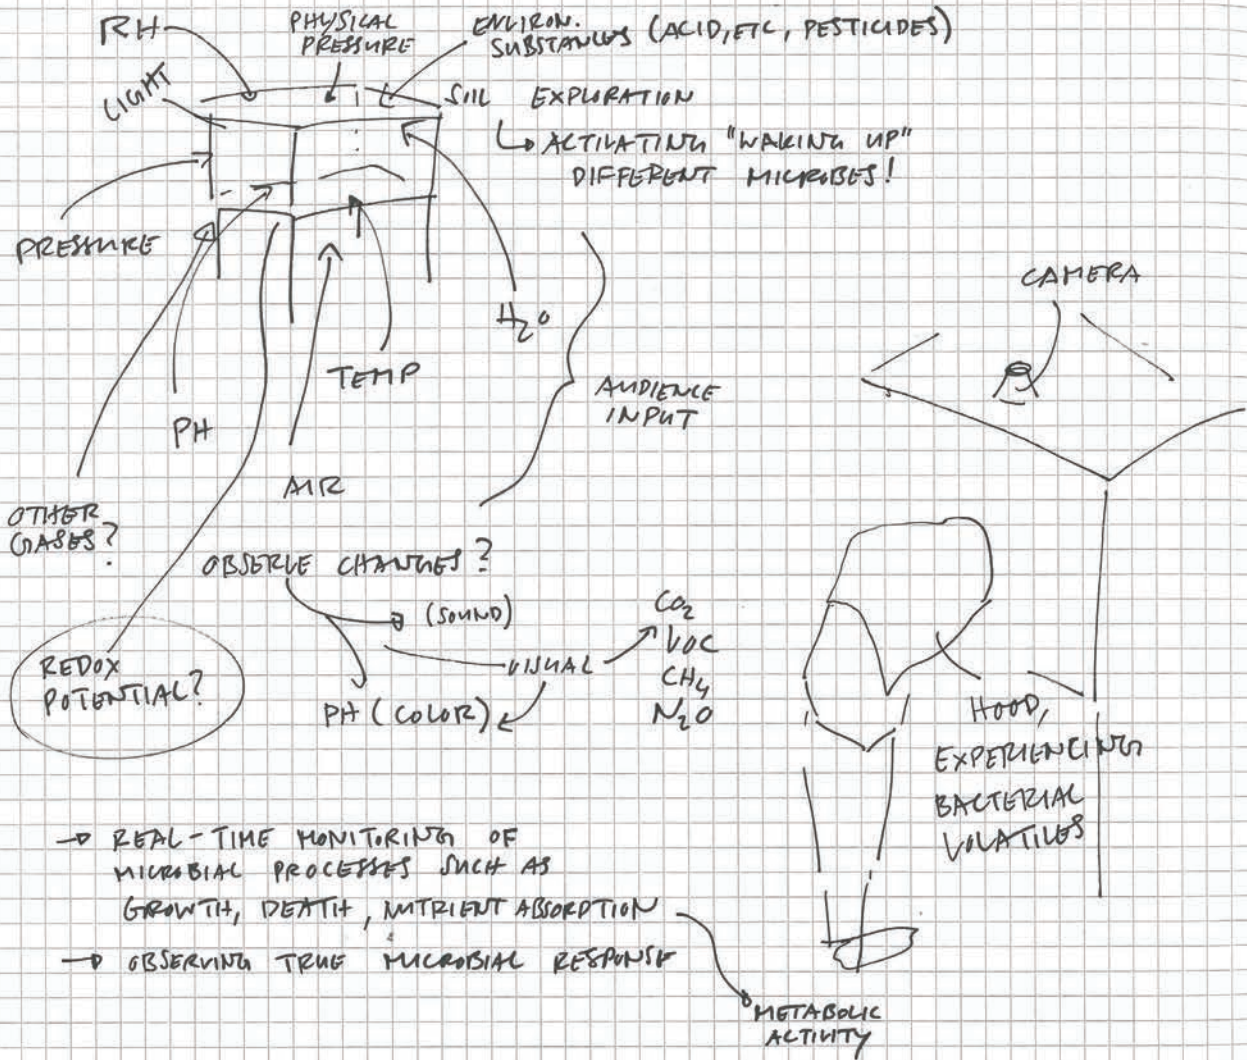 RH
PHYSICAL
PRESSURE
ENVIRON.
SUBSTANCES (ACID, ETC, PESTICIDES)
LIGHT
SOIL EXPLORATION
ACTIVATING "WAKING UP"
DIFFERENT MICROBES!
PRESSURE
H2O
CAMERA
TEMP
AUDIENCE
INPUT
PH
AIR
OTHER
GASES?
OBSERVE CHANGES?
(SOUND)
CO2
VOC
CH4
N2O
VISUAL
REDOX
POTENTIAL?
PH (COLOR)
HOOD,
EXPERIENCING
BACTERIAL
VOLATILES
→ REAL-TIME MONITORING OF
MICROBIAL PROCESSES SUCH AS
GROWTH, DEATH, NUTRIENT ABSORPTION
→ OBSERVING TRUE MICROBIAL RESPONSE
METABOLIC
ACTIVITY